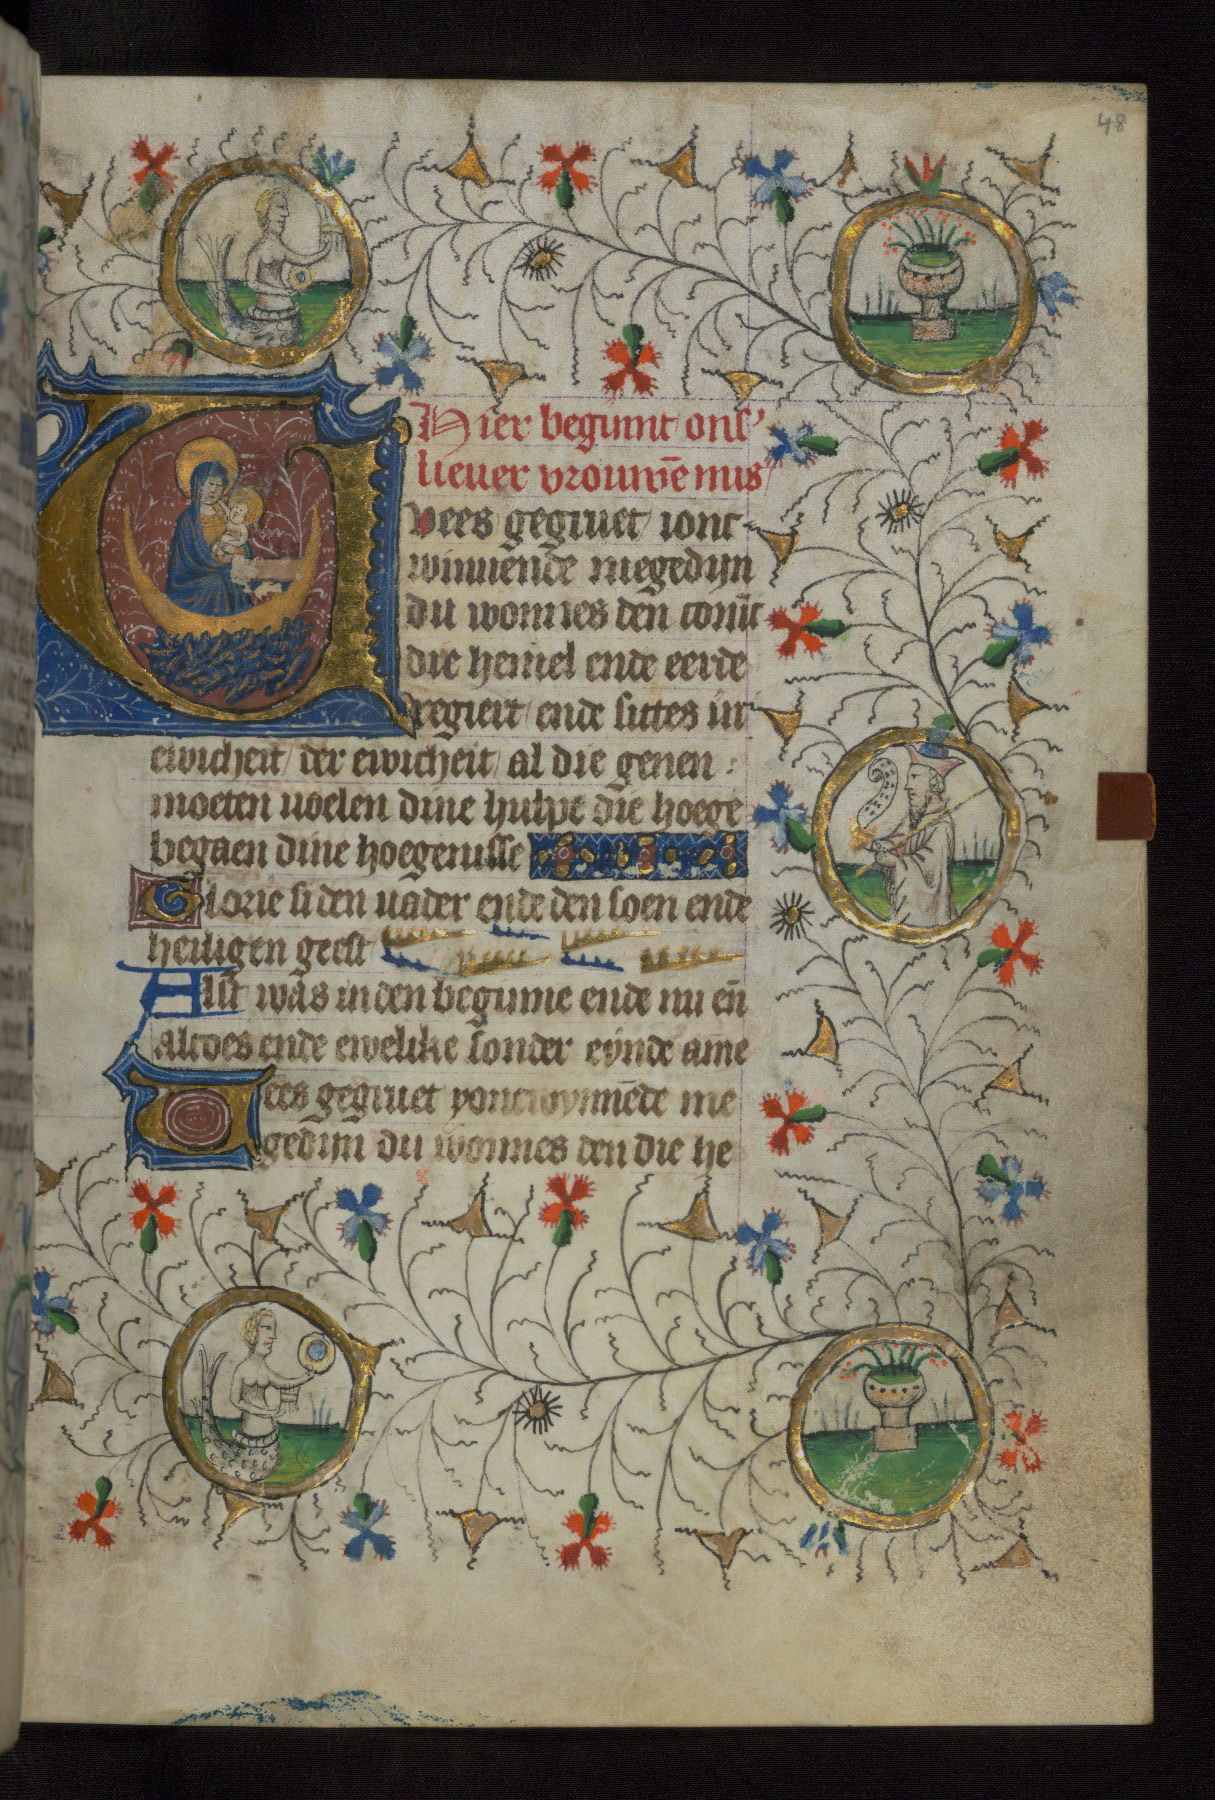 48
Hier beginnt ons'
lieuer vrouwē mis
Vees gegruet ionc
winnende megedijn
du wonnes den conīc
die hemel ende eerde
regiert ende sittes in
ewicheit der ewicheit al die genen :
moeten uoelen dine hulpe die hoege
begaen dine hoegenisse
Glorie si den uader ende den soen ende
heiligen geest
Alst was inden beginne ende nu eñ
altoes ende ewelike sonder eynde ame
Vees gegruet yoncwynnēde me
gedijn du wonnes den die he